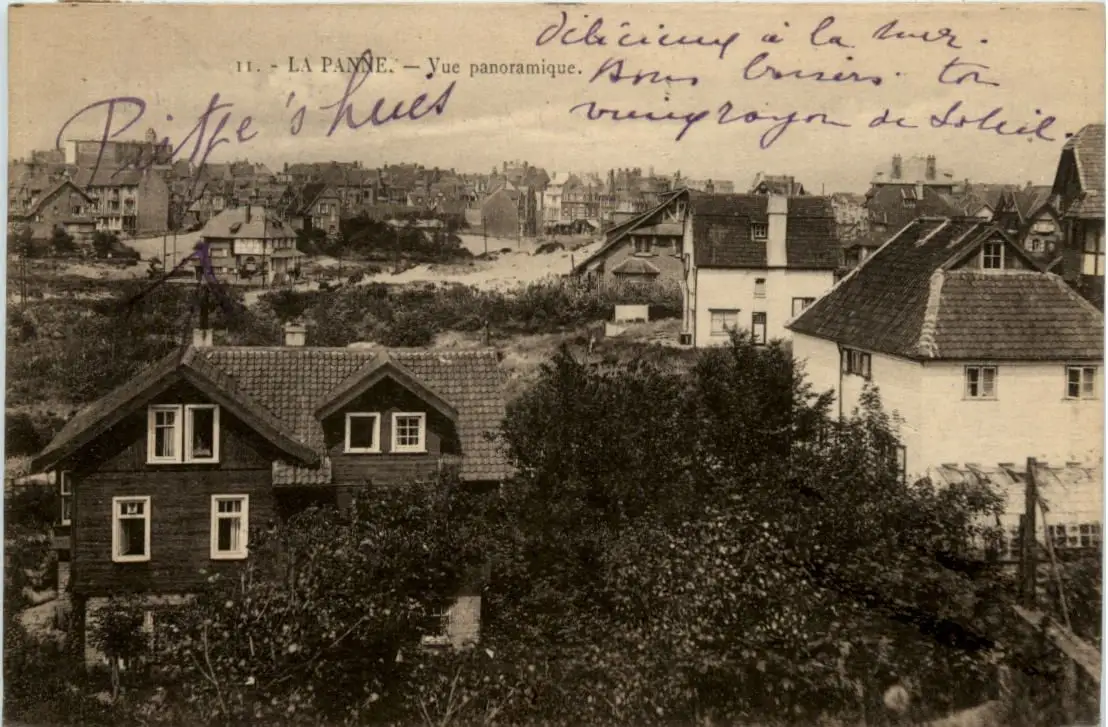 11. - LA PANNE. — Vue panoramique.
délicieux à la mer.
Bons baisers. ton
vieux rayon de Soleil.